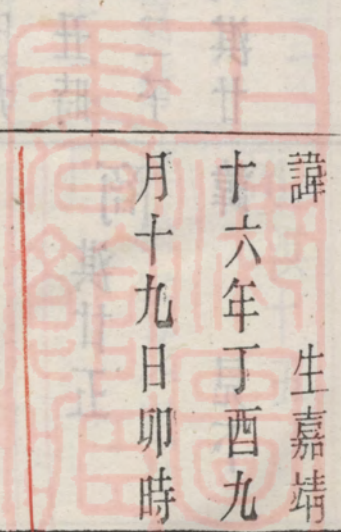 諱　　生嘉靖
十六年丁酉九
月十九日卯時